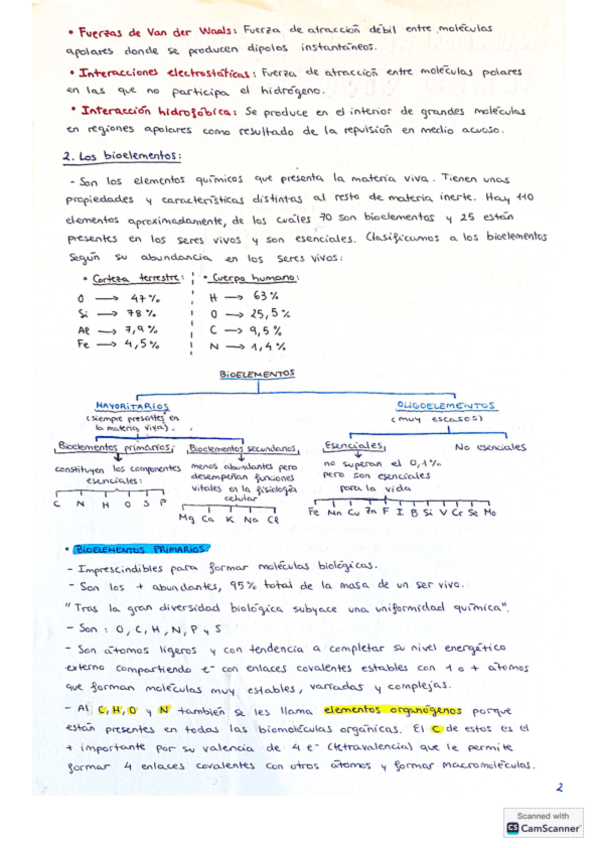 • Fuerzas de Van der Waals: Fuerza de atracción débil entre moléculas
apolares donde se producen dipolos instantáneos.
• Interacciones electrostáticas: Fuerza de atracción entre moléculas polares
en las que no participa el hidrógeno.
• Interacción hidrofóbica: Se produce en el interior de grandes moléculas
en regiones apolares como resultado de la repulsión en medio acuoso.
2. Los bioelementos:
- Son los elementos químicos que presenta la materia viva. Tienen unas
propiedades y características distintas al resto de materia inerte. Hay 110
elementos aproximadamente, de los cuáles 70 son bioelementos y 25 están
presentes en los seres vivos y son esenciales. Clasificamos a los bioelementos
según su abundancia en los seres vivos:
• Corteza terrestre: • Cuerpo humano:
O → 47% H → 63%
Si → 78% O → 25,5%
Al → 7,9% C → 9,5%
Fe → 4,5% N → 1,4%
BIOELEMENTOS
MAYORITARIOS OLIGOELEMENTOS
(siempre presentes en (muy escasos)
la materia viva).
Bioelementos primarios Bioelementos secundarios Esenciales No esenciales
constituyen los componentes menos abundantes pero no superan el 0,1%
esenciales: desempeñan funciones pero son esenciales
vitales en la fisiología para la vida
celular
C N H O S P
Mg Ca K Na Cl
Fe Mn Cu Zn F I B Si V Cr Se Mo
• BIOELEMENTOS PRIMARIOS:
- Imprescindibles para formar moléculas biológicas.
- Son los + abundantes, 95% total de la masa de un ser vivo.
"Tras la gran diversidad biológica subyace una uniformidad química".
- Son: O, C, H, N, P y S
- Son átomos ligeros y con tendencia a completar su nivel energético
externo compartiendo e- con enlaces covalentes estables con 1 o + átomos
que forman moléculas muy estables, variadas y complejas.
- Al C, H, O y N también se les llama elementos organógenos porque
están presentes en todas las biomoléculas orgánicas. El C de estos es el
+ importante por su valencia de 4 e- (tetravalencia) que le permite
formar 4 enlaces covalentes con otros átomos y formar macromoléculas.
2
Scanned with
CS CamScanner